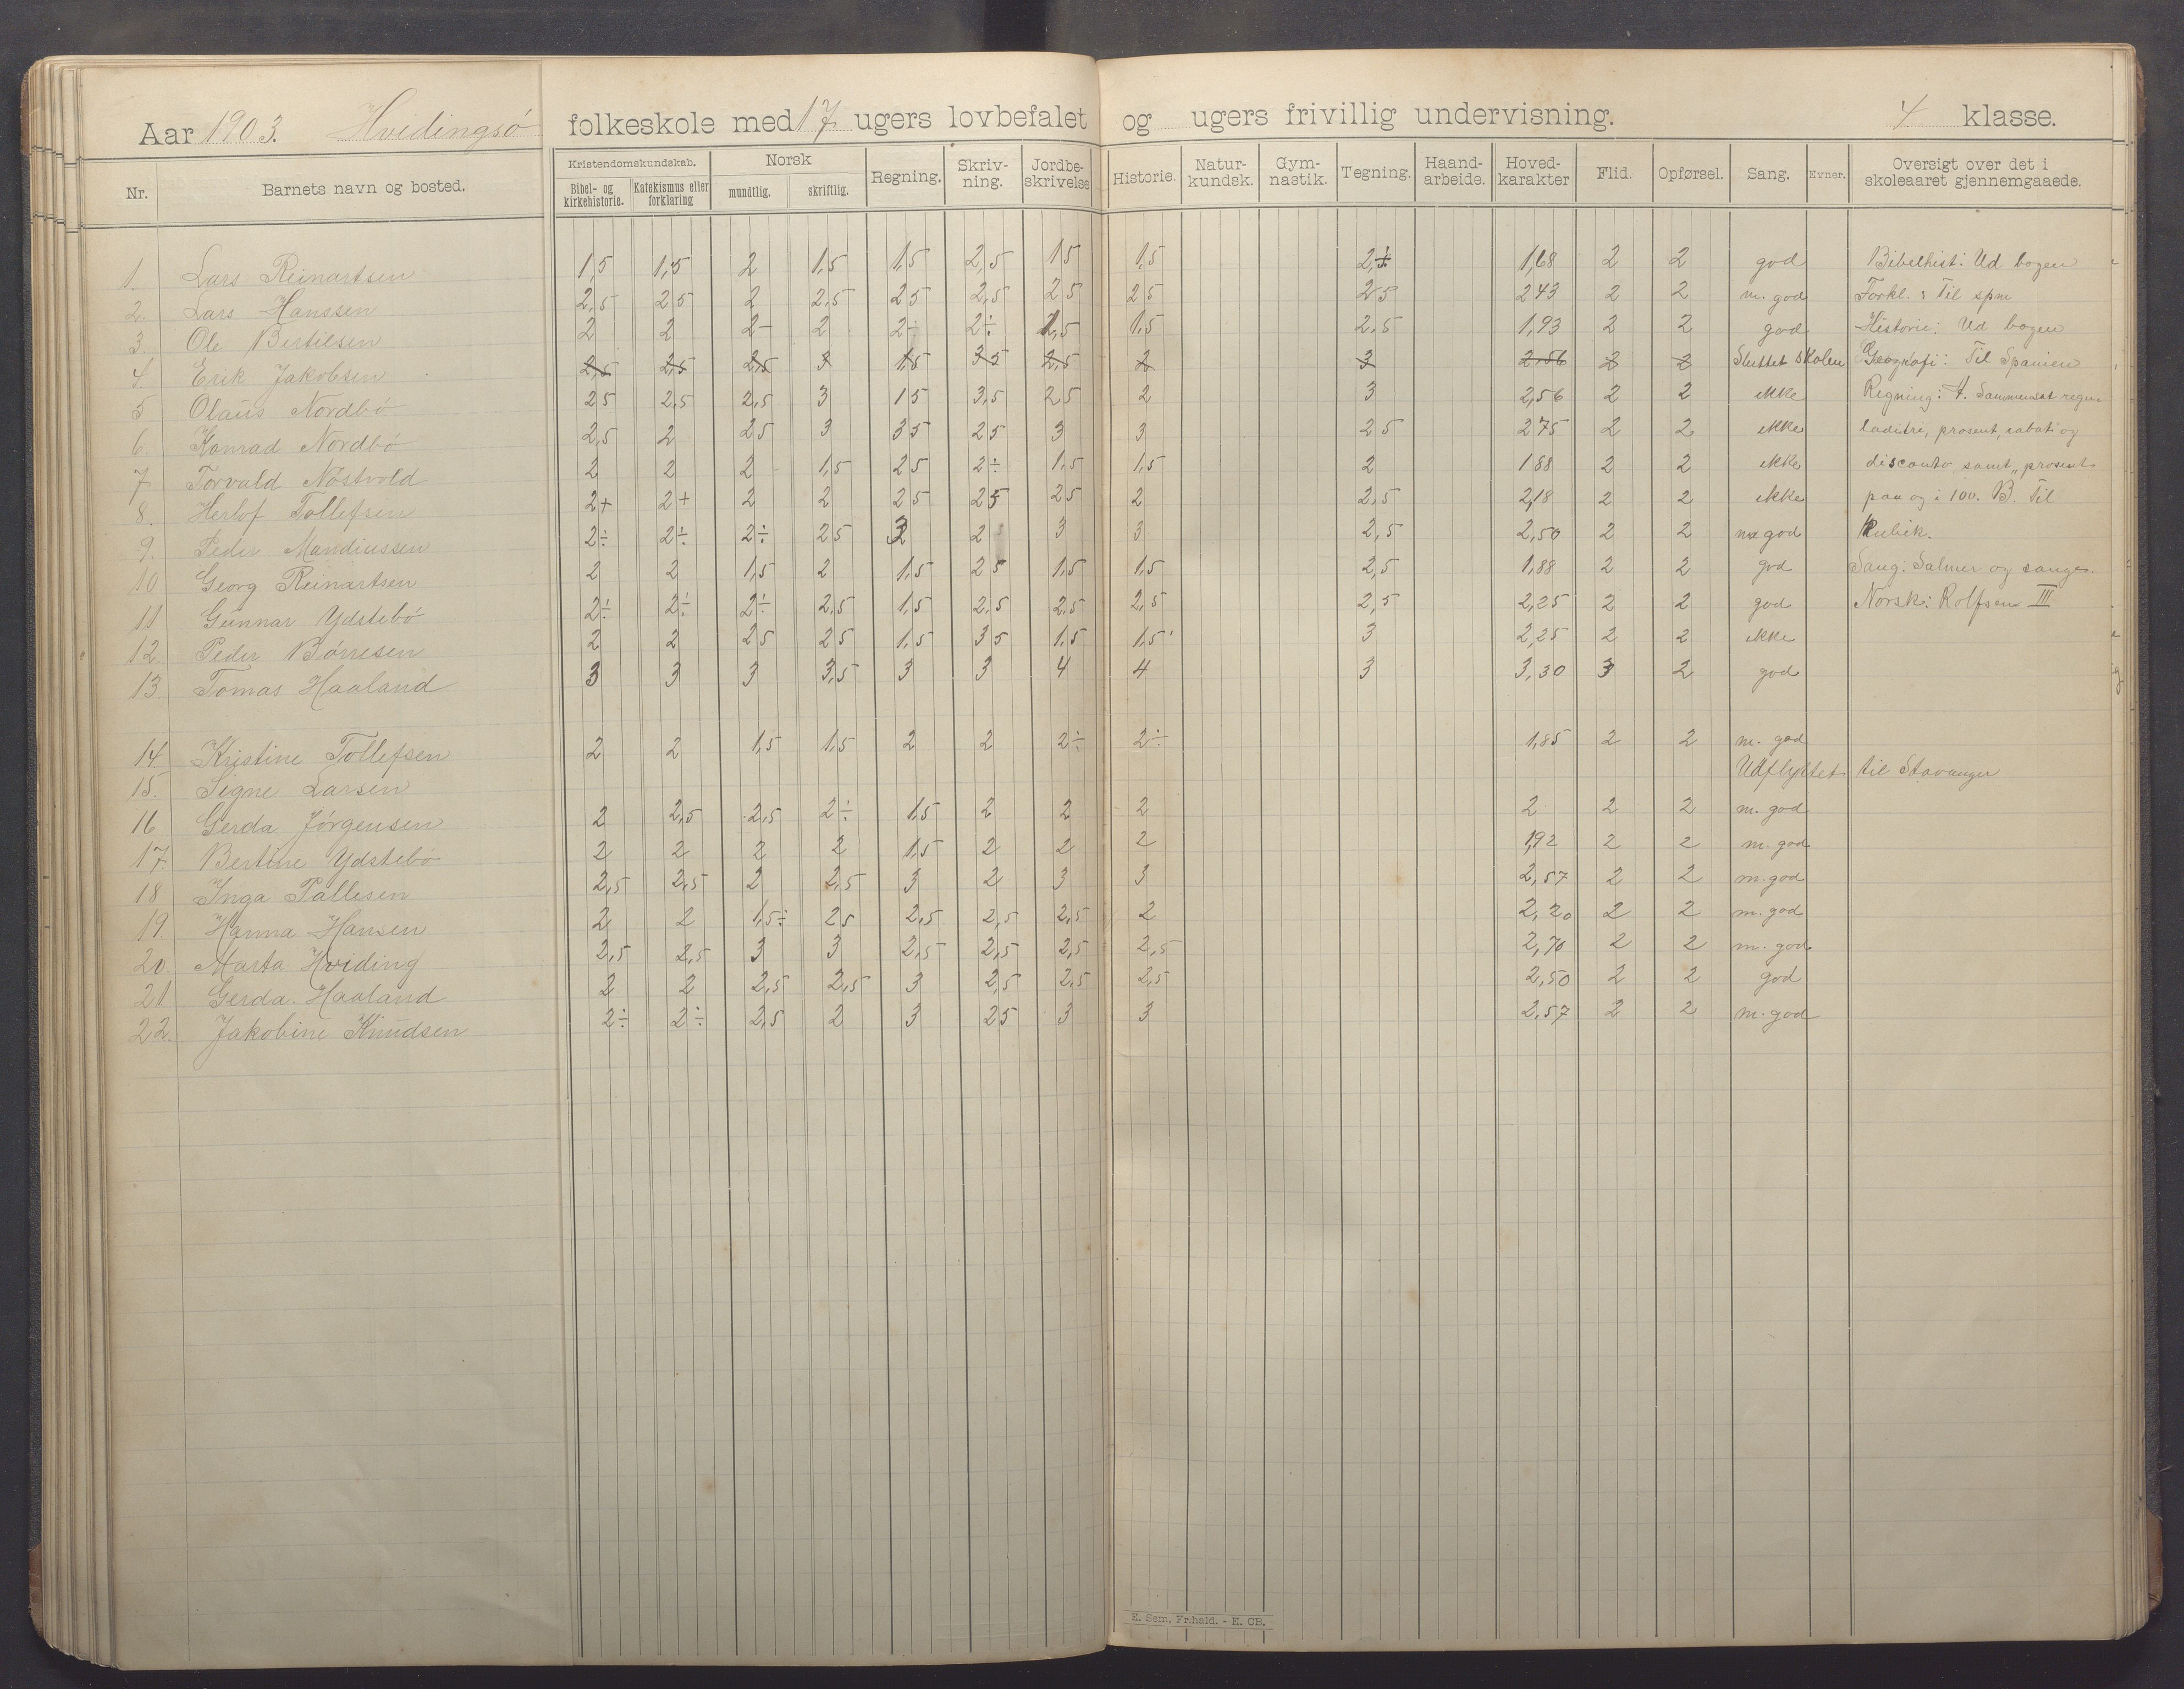 Aar 1903. Hvidingsö folkeskole med 17 ugers lovbefalet og ugers frivillig undervisning. 4 klasse.
Nr. Barnets navn og bosted. Kristendomskundskab. Bibel- og kirkehistorie. Katekismus eller forklaring Norsk mundtlig. skriftlig. Regning. Skriv-ning. Jordbe-skrivelse Historie. Natur-kundsk. Gym-nastik. Tegning. Haand-arbeide. Hoved-karakter Flid. Opførsel. Sang. Evner. Oversigt over det i skoleaaret gjennemgaaede.
1. Lars Reinartsen 1,5 1,5 2 1,5 1,5 2,5 15 1,5 2,÷ 1,68 2 2 god Bibelhist: Ud bogen
2. Lars Hanssen 2,5 25 2 2,5 25 2,5 25 25 25 243 2 2 m. god Forkl.: Til spm
3. Ole Bertilsen 2 2 2- 2 2- 2÷ 1,5 1,5 2,5 1,93 2 2 god Historie: Ud bogen
4. Erik Jakobsen 2,5 2,5 2,5 3 1,5 35 2,5 2 3 2,56 2 2 Sluttet skolen Geografi: Til Spanien
5 Olaus Nordbö 25 2,5 2,5 3 15 3,5 25 2 3 2,56 2 2 ikke Regning: A. Sammensat regu-
6. Konrad Nordbö 2,5 2 25 3 35 25 3 3 25 275 2 2 ikke ladetri, prosent, rabat og
7 Torvald Nästvold 2 2 2 1,5 25 2÷ 1,5 1,5 2 188 2 2 ikke disconto samt "prosent
8. Herlof Tollefsen 2+ 2+ 2 2 25 25 25 2 2,5 2,18 2 2 ikke paa og i 100. B. Til
9. Peder Mandiussen 2÷ 2÷ 2÷ 25 3 2 3 3 2,5 2,50 2 2 god Kubik.
10 Georg Reinartsen 2 2 1,5 2 1,5 25 1,5 1,5 2,5 1,88 2 2 god Sang: Salmer og sange.
11 Gunnar Ydstebö 2÷ 2÷ 2÷ 2,5 1,5 2,5 2,5 2,5 2,5 2,25 2 2 god Norsk: Rolfsen III
12. Peder Börresen 2 2 25 25 1,5 35 1,5 1,5 3 2,25 2 2 ikke
13. Tomas Haaland 3 3 3 3,5 3 3 4 4 3 3,30 3 2 god
14. Kristine Tollefsen 2 2 1,5 1,5 2 2 2÷ 2÷ 1,85 2 2 m. god
15. Signe Larsen Udflyttet til Stavanger
16 Gerda Jörgensen 2 2,5 2,5 2÷ 1,5 2 2 2 2 2 2 m. god
17. Bertine Ydstebö 2 2 2 2 1,5 2 2 2 1,92 2 2 m. god
18 Inga Pallesen 2,5 2,5 2 2,5 3 2 3 3 2,57 2 2 m. god
19 Hanna Hansen 2 2 1,5÷ 25 2,5 2,5 2,5 2 2,20 2 2 m. god
20. Marta Hviding 2,5 2,5 3 3 2,5 2,5 2,5 2,5 2,70 2 2 m. god
21 Gerda Haaland 2 2 2,5 2,5 3 2,5 2,5 2,5 2,50 2 2 god
22. Jakobine Knudsen 2÷ 2÷ 2,5 2 3 25 3 3 2,57 2 2 m. god
E. Sem, Fr.hald. - E. CB.